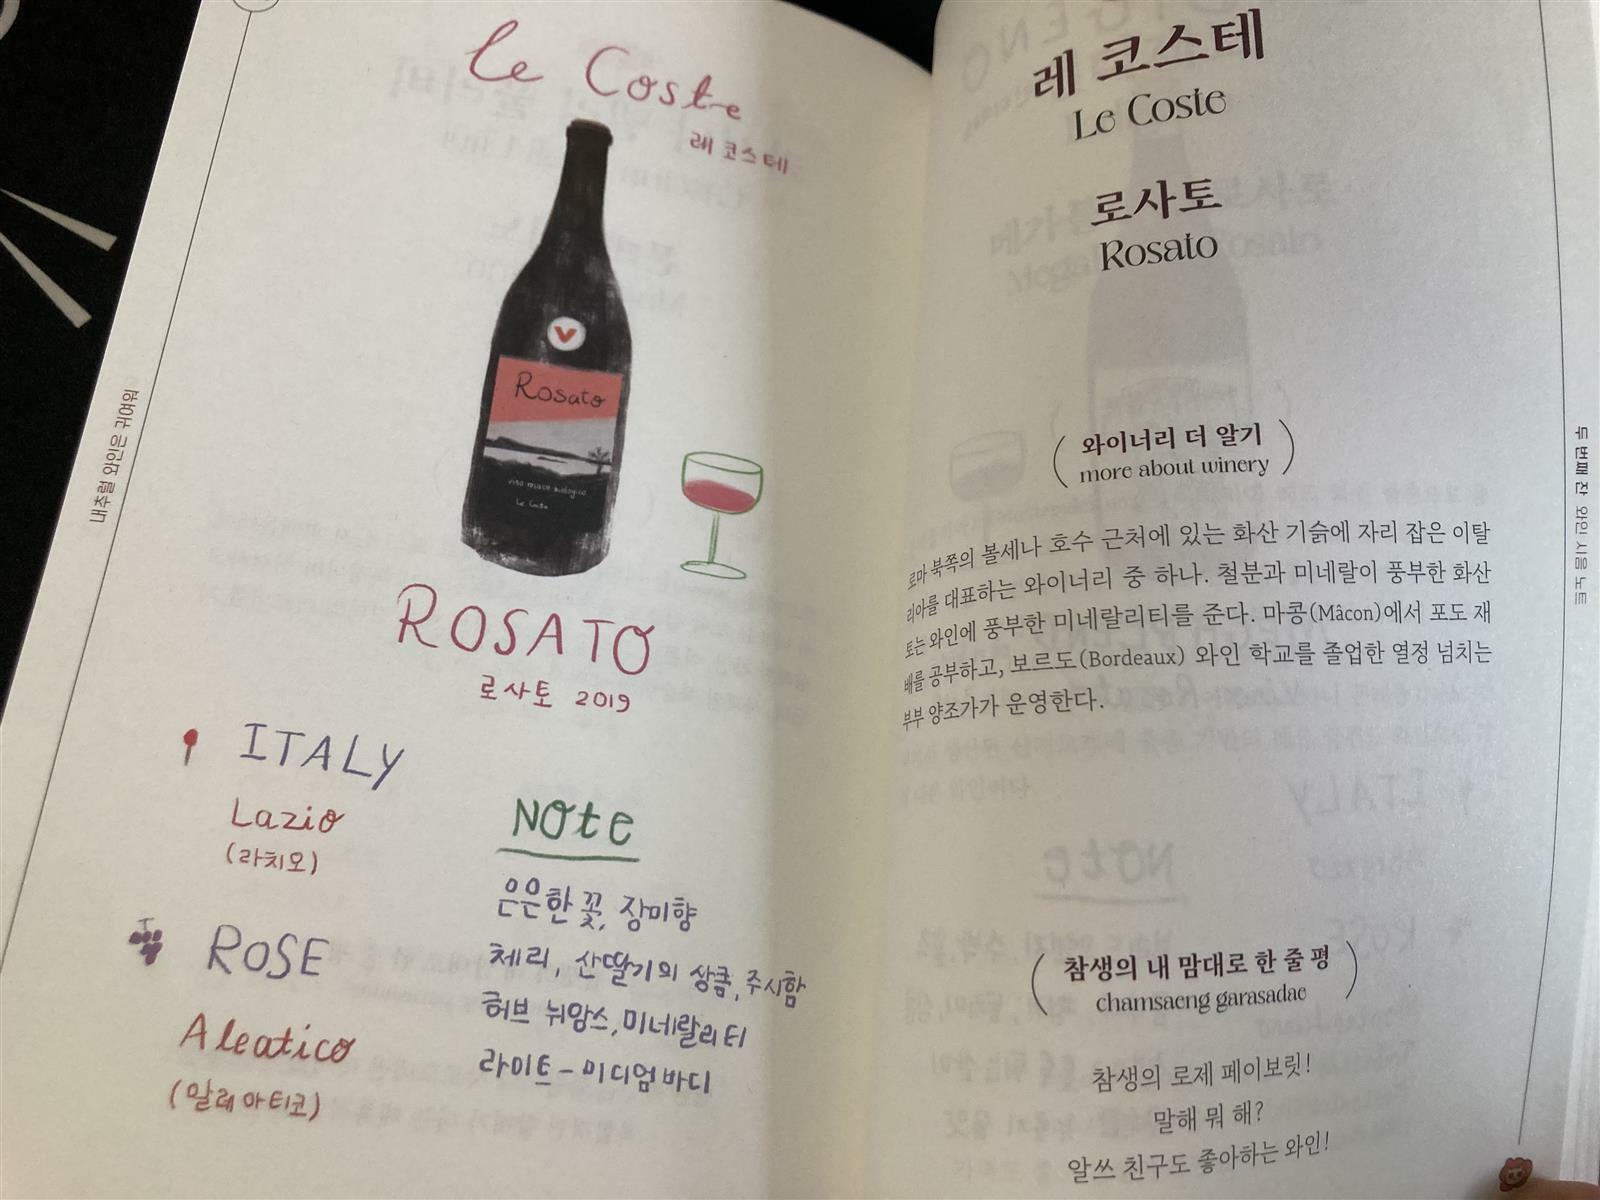 내추럴 와인은 귀여워
le Coste
레 코스테
Rosato
Le Coste
ROSATO
로사토 2019
ITALY
Lazio
(라치오)
ROSE
Aleatico
(알레아티코)
Note
은은한 꽃, 장미향
체리, 산딸기의 상큼, 주시함
허브 뉘앙스, 미네랄리티
라이트 - 미디엄 바디
레 코스테
Le Coste
로사토
Rosato
(와이너리 더 알기)
more about winery
로마 북쪽의 볼세나 호수 근처에 있는 화산 기슭에 자리 잡은 이탈
리아를 대표하는 와이너리 중 하나. 철분과 미네랄이 풍부한 화산
토는 와인에 풍부한 미네랄리티를 준다. 마콩(Mâcon)에서 포도 재
배를 공부하고, 보르도(Bordeaux) 와인 학교를 졸업한 열정 넘치는
부부 양조가가 운영한다.
(참생의 내 맘대로 한 줄 평)
chamsaeng garasadae
참생의 로제 페이보릿!
말해 뭐 해?
알쓰 친구도 좋아하는 와인!
두 번째 잔 와인 시음 노트